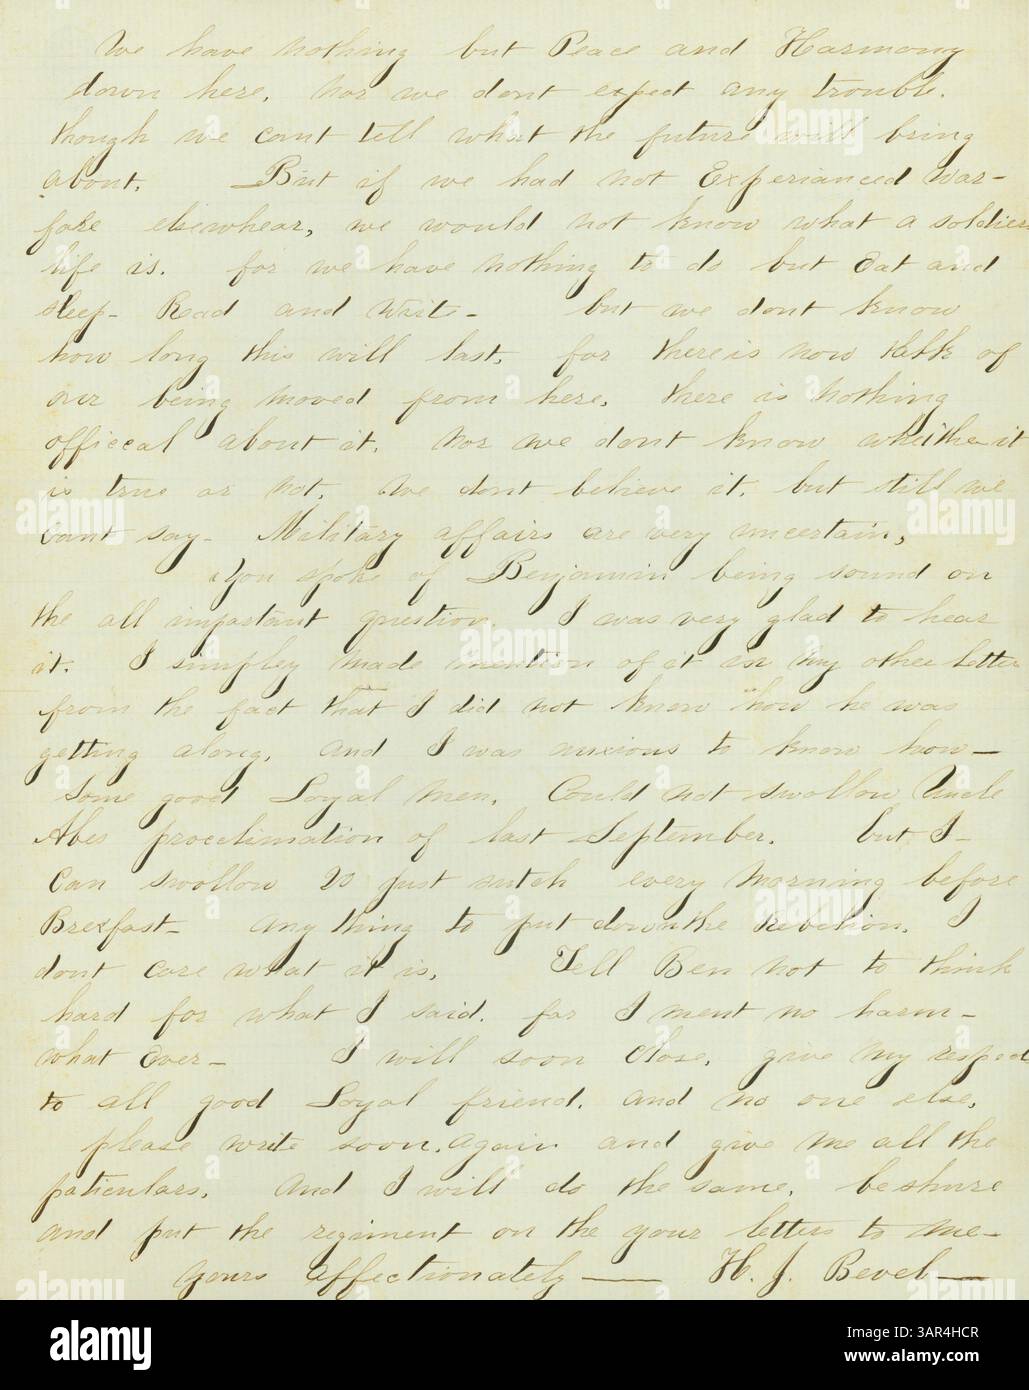 We have nothing but Peace and Harmony
down here, nor we dont expect any trouble.
though we cant tell what the future will bring
about. But if we had not Experianced War-
fare elsewhear, we would not know what a soldiers
life is. for we have nothing to do but Eat and
sleep- Read and Write- but we dont know
how long this will last, for there is now talk of
our being moved from here, there is nothing
officeal about it. nor we dont know wheithe it
is true or not, we dont believe it, but still we
cant say- Military affairs are very uncertain,
You spoke of Benjamin being sound on
the all important question. I was very glad to hear
it. I simpley made mention of it in my other letter
from the fact that I did not know how he was
getting along, and I was anxious to know how-
Some good Loyal men, Could not swollow Uncle
Abes proceelimation of last September. but I-
Can swollow 20 just sutch every morning before
Brexfast- any thing to put down the Rebelion. I
dont care what it is, Tell Ben not to think
hard for what I said. for I ment no harm-
what Ever- I will soon Close, give my respect
to all good Loyal friend. and no one else,
please write soon, again and give me all the
paticulars, And I will do the same, be shure
and put the regiment on the your letters to me-
yours affectionately- H. J. Bevel-
alamy
alamy
Image ID: 3AR4HCR
www.alamy.com